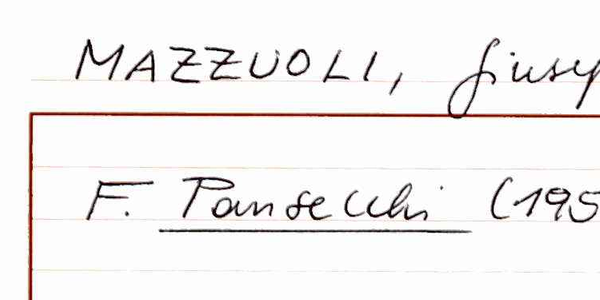 MAZZUOLI, Giusep
F. Pansecchi (195